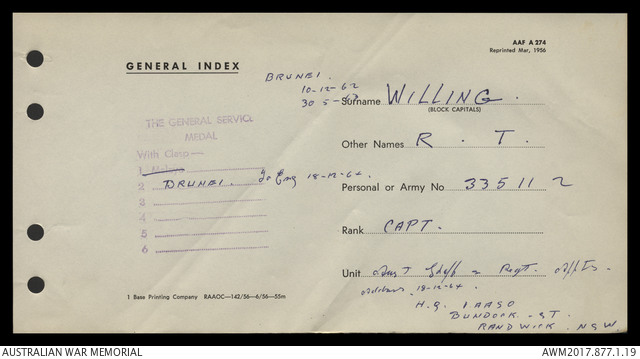 AAF A 274
Reprinted Mar, 1956
GENERAL INDEX
BRUNEI.
10-12-62
30 5-63
Surname WILLING.
(BLOCK CAPITALS)
THE GENERAL SERVICE
MEDAL
With Clasp—
1 Malaya
2 BRUNEI. To Eng 18-12-64.
3
4
5
6
Other Names R. T.
Personal or Army No 335112
Rank CAPT.
Unit Aust Staff & Regt.
Address 18-12-64.
H.Q.
BUNDOCK - ST.
RANDWICK. NSW.
1 Base Printing Company RAAOC—142/56—6/56—55m
AUSTRALIAN WAR MEMORIAL
AWM2017.877.1.19